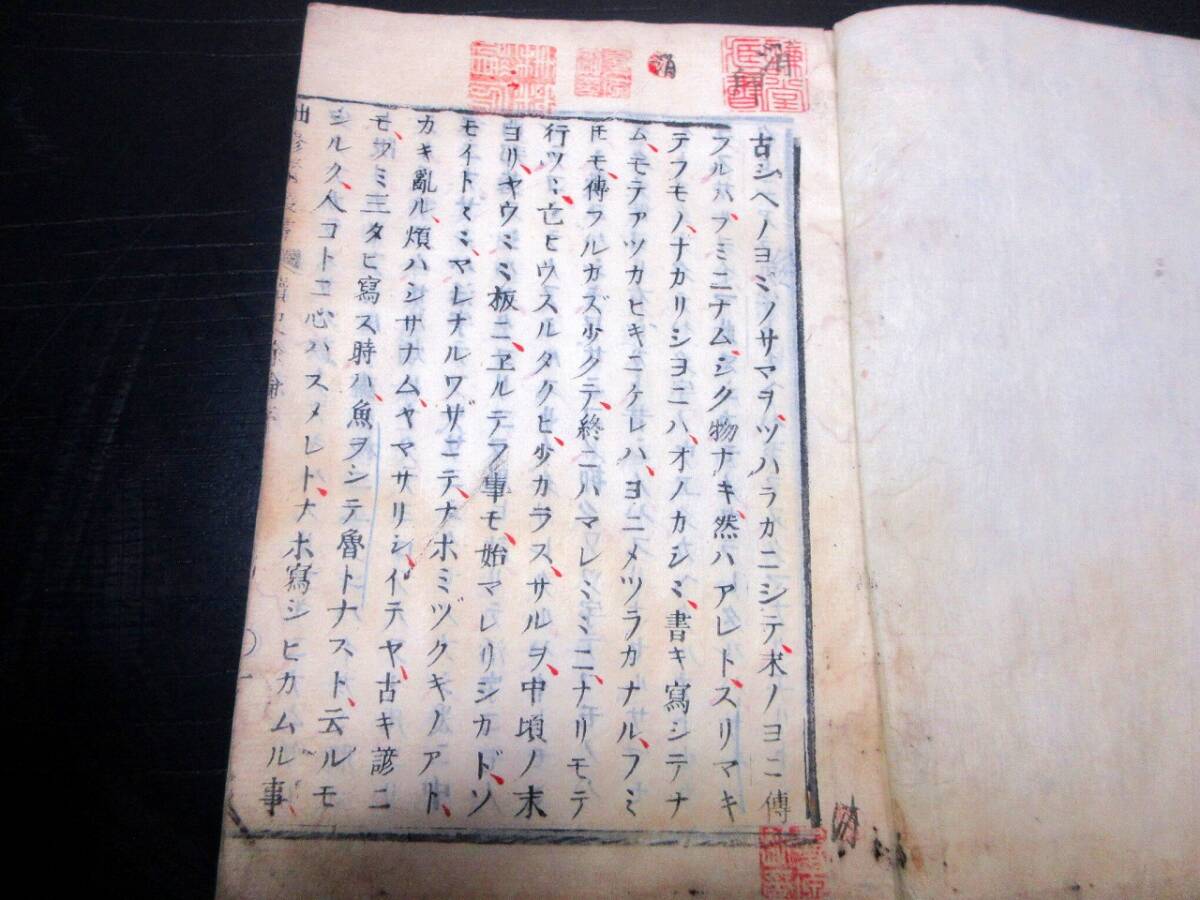 古シヘノヨミノサマヲ、ツハラカニシテ、末ノヨニ傳
フルハ、フミニナム、シク物ナキ、然ハアレト、スリマキ
テフモノ、ナカリシヨニハ、オノカシミ、書キ寫シテナ
ム、モテアツカヒキニケレハ、ヨニメツラカナル、フミ
トモ、傳フルカズ少クテ、終ニハマレミミニ、ナリモテ
行ツミ、亡ヒウスルタクヒ、少カラス、サルヲ、中頃ノ末
ヨリ、ヤウミミ板ニヱルテフ事モ、始マレリシカド、ソ
モイトミミ、マレナルワザニテ、ナホミヅクキノアト、
カキ亂ル、煩ハシサナム、ヤマサリシ、イテヤ、古キ諺ニ
モ、フミ三タヒ寫ス時ハ、魚ヲシテ魯トナスト、云ルモ
シルク、人コトニ心ハスメレト、ナホ寫シヒカムル事、
消
消
消